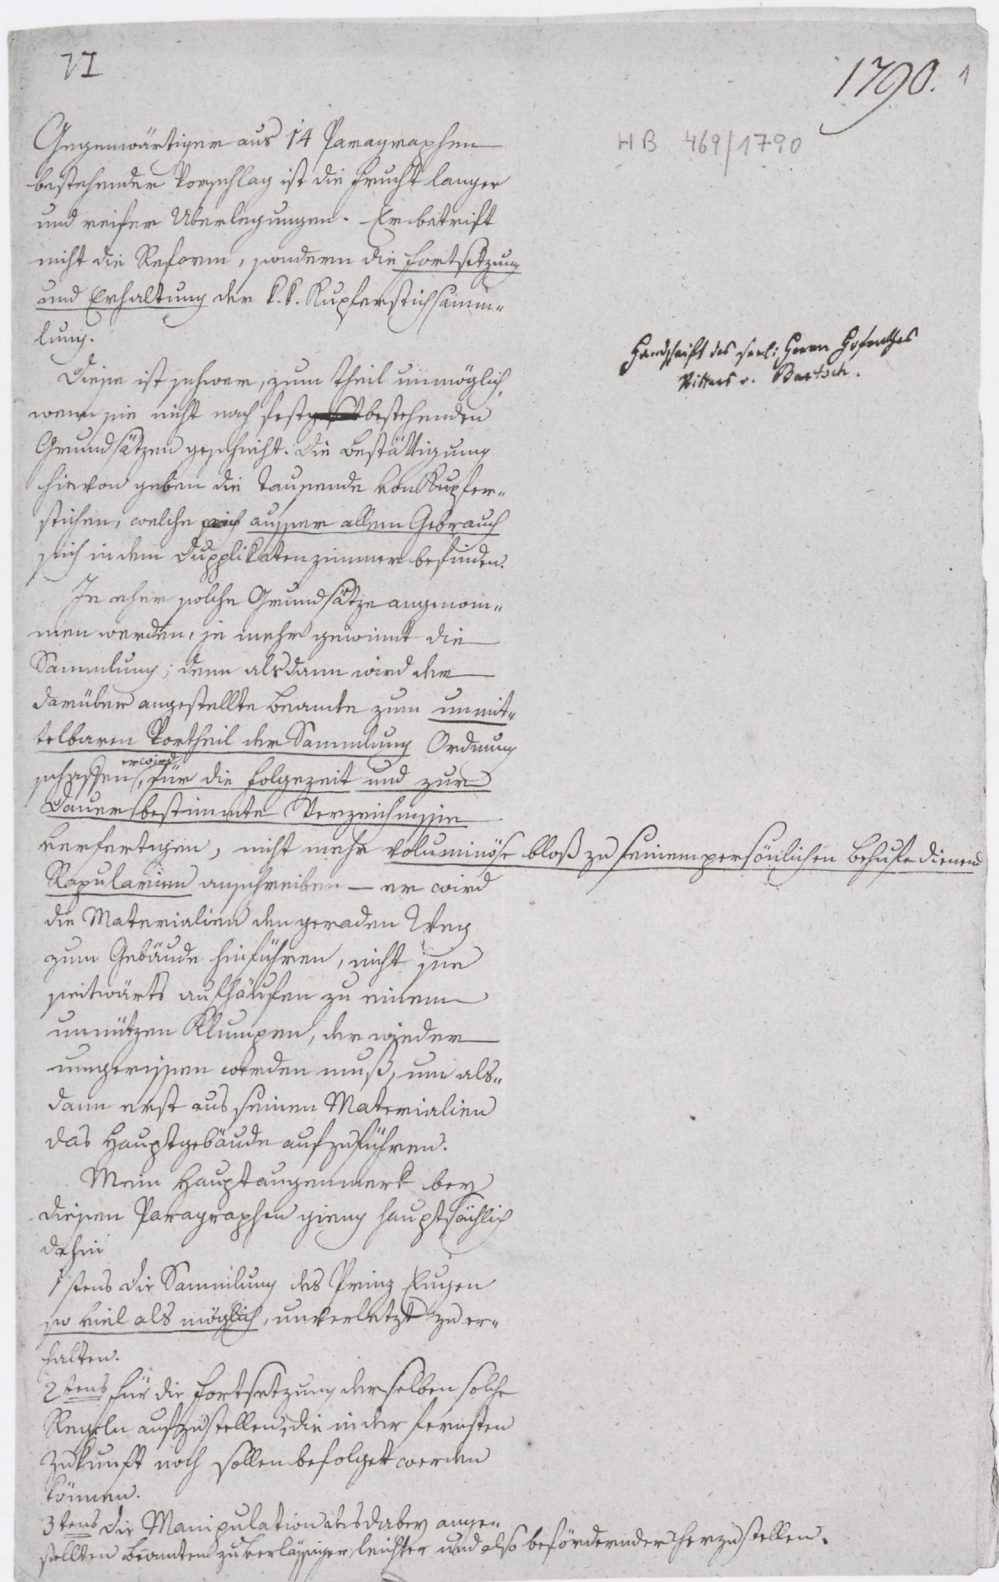 VI
1790. 1
HB 469/1790
Gegenwärtiger aus 14 Paragraphen
bestehender Vorschlag ist die Frucht langer
und reifer Uberlegungen. Er betrift
nicht die Reform, sondern die Fortsetzung
und Erhaltung der k. k. Kupferstichsamm„
lung.
Handschrift des seel: Herrn Hofrathes
Ritters v. Bartsch.
Diese ist schwer, zum Theil unmöglich,
wenn sie nicht nach fest bestehenden
Grundsätzen geschieht. Die Bestättigung
hievon geben die Tausende von Kupfer„
stichen, welche ausser allem Gebrauch
sich in dem Dupplikatenzimmer befinden.
Je eher solche Grundsätze angenom„
men werden, je mehr gewinnt die
Sammlung; denn alsdann wird der
darüber angestellte Beamte zum unmit„
telbaren Vortheil der Sammlung Ordnung
schaffen, er wird für die Folgezeit und zur
Dauer bestimmte Verzeichnisse
verfertigen, nicht mehr voluminöse bloß zu seinem persönlichen Behufe dienend
Rapularien anschreiben — er wird
die Materialien den geraden Weg
zum Gebäude hinführen, nicht sie
seitwärts aufhäufen zu einem
unnützen Klumpen, der wieder
umgerissen werden muß, um als„
dann erst aus seinen Materialien
das Hauptgebäude aufzuführen.
Mein Hauptaugenmerk bey
diesen Paragraphen gieng hauptsächlich
dahin
1stens die Sammlung des Prinz Eugen
so viel als möglich, unverletzt zu er„
halten.
2tens für die Fortsetzung derselben solche
Regeln aufzustellen, die in der fernsten
Zukunft noch sollen befolget werden
können.
3tens die Manipulation des dabey ange„
stellten Beamten zuverlässiger, leichter und also befördernder herzustellen.